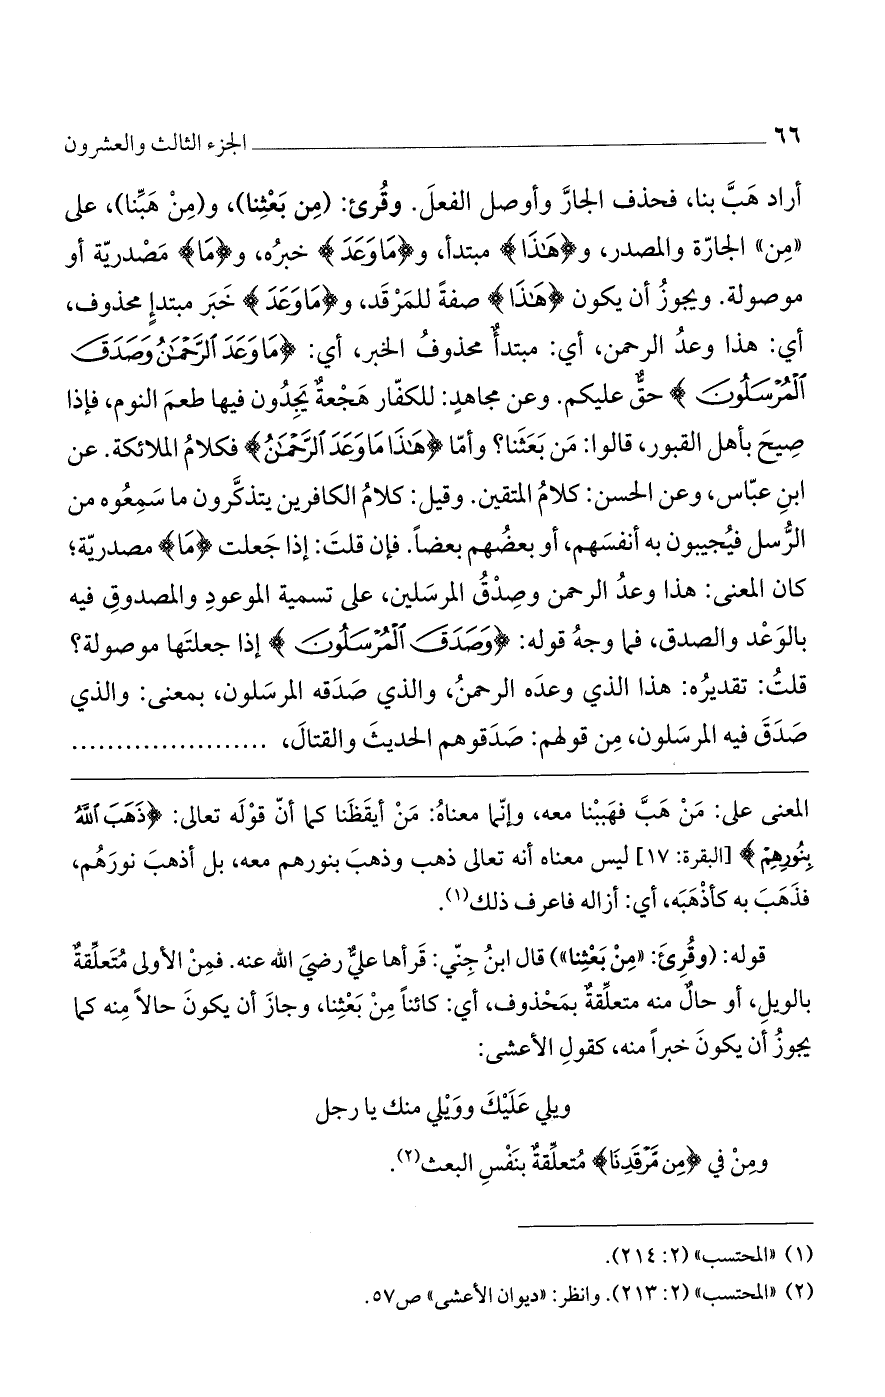 ٦٦ الجزء الثالث والعشرون
أراد هَبَّ بنا، فحذف الجارَّ وأوصل الفعلَ. وقُرئ: (مِن بَعْثِنا)، و(مِنْ هَبِّنا)، على
«مِن» الجارّة والمصدر، و﴿هَٰذَا﴾ مبتدأ، و﴿مَا وَعَدَ﴾ خبرُه، و﴿مَا﴾ مَصْدريّة أو
موصولة. ويجوزُ أن يكون ﴿هَٰذَا﴾ صفةً للمَرْقَد، و﴿مَا وَعَدَ﴾ خَبَر مبتدإٍ محذوف،
أي: هذا وعدُ الرحمن، أي: مبتدأٌ محذوفُ الخبر، أي: ﴿مَا وَعَدَ ٱلرَّحْمَٰنُ وَصَدَقَ
ٱلْمُرْسَلُونَ﴾ حقٌّ عليكم. وعن مجاهدٍ: للكفّار هَجْعةٌ يَجِدُون فيها طعمَ النوم، فإذا
صِيحَ بأهل القبور، قالوا: مَن بَعَثَنا؟ وأمّا ﴿هَٰذَا مَا وَعَدَ ٱلرَّحْمَٰنُ﴾ فكلامُ الملائكة. عن
ابنِ عبّاس، وعن الحسن: كلامُ المتقين. وقيل: كلامُ الكافرين يتذكَّرون ما سَمِعُوه من
الرُّسل فيُجيبون به أنفسَهم، أو بعضُهم بعضاً. فإن قلتَ: إذا جَعلت ﴿مَا﴾ مصدريّة؛
كان المعنى: هذا وعدُ الرحمن وصِدْقُ المرسَلين، على تسمية الموعودِ والمصدوقِ فيه
بالوَعْد والصدق، فما وجهُ قوله: ﴿وَصَدَقَ ٱلْمُرْسَلُونَ﴾ إذا جعلتَها موصولة؟
قلتُ: تقديرُه: هذا الذي وعدَه الرحمنُ، والذي صَدَقه المرسَلون، بمعنى: والذي
صَدَقَ فيه المرسَلون، مِن قولهم: صَدَقوهم الحديثَ والقتالَ، ......................
المعنى على: مَنْ هَبَّ فهَبِبْنا معه، وإنّما معناهُ: مَنْ أيقَظَنا كما أنّ قوْلَه تعالى: ﴿ذَهَبَ ٱللَّهُ
بِنُورِهِمْ﴾ [البقرة: ١٧] ليس معناه أنه تعالى ذهب وذهبَ بنورهم معه، بل أذهبَ نورَهُم،
فذَهَبَ به كأذْهَبَه، أي: أزاله فاعرف ذلك(١).
قوله: (وقُرِئَ: «مِنْ بَعْثِنا») قال ابنُ جِنّي: قَرأها عليٌّ رضيَ الله عنه. فمِنْ الأولى مُتَعلِّقةٌ
بالويلِ، أو حالٌ منه متعلِّقةٌ بمَحْذوف، أي: كائناً مِنْ بَعْثِنا، وجازَ أن يكونَ حالاً مِنه كما
يجوزُ أن يكونَ خبراً منه، كقولِ الأعشى:
ويلي عَلَيْكَ ووَيْلي منك يا رجل
ومِنْ في ﴿مِن مَّرْقَدِنَا﴾ مُتعلِّقةٌ بنَفْسِ البعث(٢).
(١) «المحتسب» (٢: ٢١٤).
(٢) «المحتسب» (٢: ٢١٣). وانظر: «ديوان الأعشى» ص٥٧.